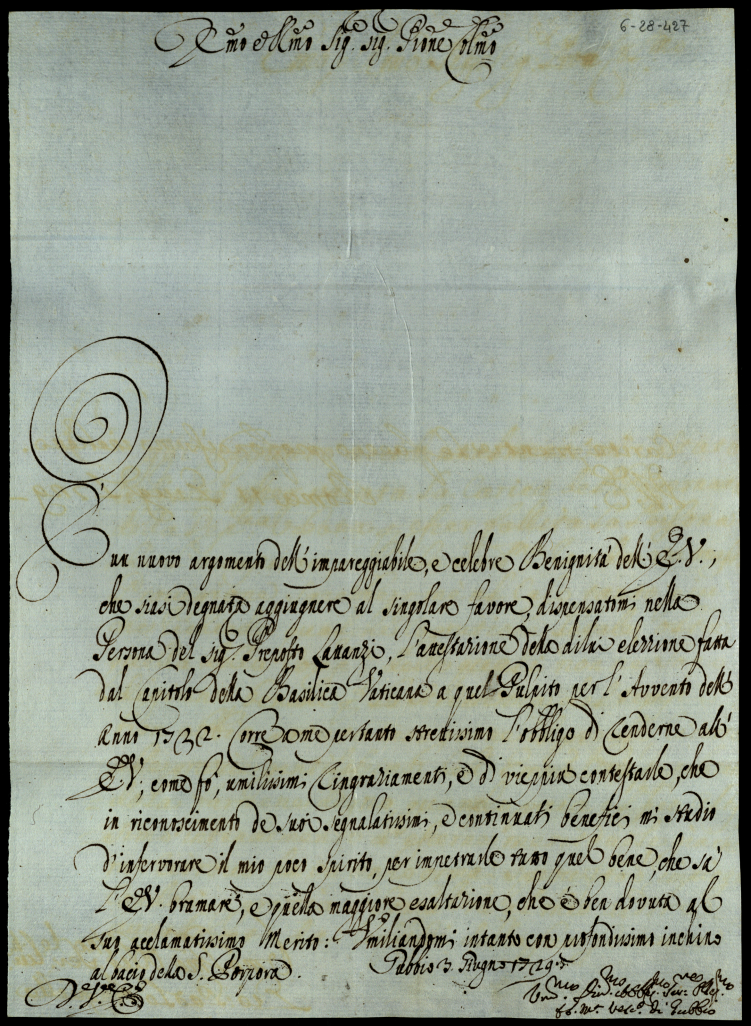 6-28-427
Emo e Rmo Sig. Sig. Prone Colmo
È un nuovo argomento dell'impareggiabile, e celebre Benignità dell'E.V.,
che siasi degnata aggiugnere al singolare favore, dispensatomi nella
Persona del Sig. Preposto Lavanzi, l'attestazione della di lui elezzione fatta
dal Capitolo della Basilica Vaticana a quel Pulpito per l'Avvento dell'
Anno 1732. Corre a me pertanto strettissimo l'obbligo di renderne all'
E.V., come fò, umilissimi ringraziamenti, e di vieppiù contestarle, che
in riconoscimento de suoi segnalatissimi, e continuati benefici mi studio
d'infervorare il mio poco spirito, per impetrarle tutto quel bene, che sà
l'E.V. bramare, e quella maggiore esaltazione, che è ben dovuta al
suo acclamatissimo Merito: Umiliandomi intanto con profondissimo inchino
al bacio della S. Porpora. Gubbio 3. Giugno 1729.
D. V. E.
Umo Divmo Obblmo Serv.
Vesco di Gubbio